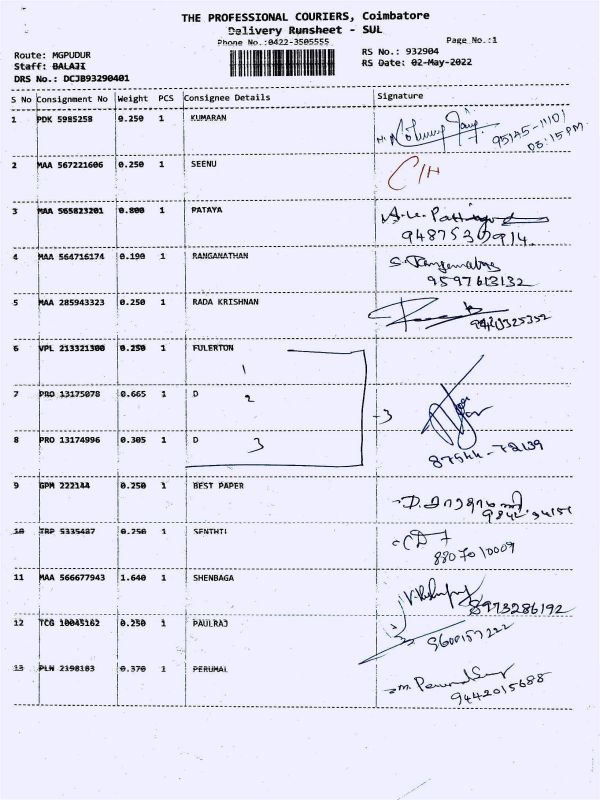 THE PROFESSIONAL COURIERS, Coimbatore
Delivery Runsheet - SUL
Phone No.:0422-3505555
Page No.:1
Route: MGPUDUR
RS No.: 932904
Staff: BALAJI
RS Date: 02-May-2022
DRS No.: DCJB93290401
S No Consignment No Weight PCS Consignee Details Signature
1 PDK 5985258 0.250 1 KUMARAN 95145-11101
08:15 PM
2 MAA 567221606 0.250 1 SEENU C/H
3 MAA 565823201 0.800 1 PATAYA
4 MAA 564716174 0.190 1 RANGANATHAN
9597613132
5 MAA 285943323 0.250 1 RADA KRISHNAN
6 VPL 213321300 0.250 1 FULERTON
1
7 PRO 13175078 0.665 1 D 2 -3
8 PRO 13174996 0.305 1 D 3
9 GPM 222144 0.250 1 BEST PAPER
10 TRP 5335487 0.250 1 SENTHTL
8807010009
11 MAA 566677943 1.640 1 SHENBAGA
8973286192
12 TCG 10045162 0.250 1 PAULRAJ
9600157222
13 PLN 2198183 0.370 1 PERUMAL
9442015688